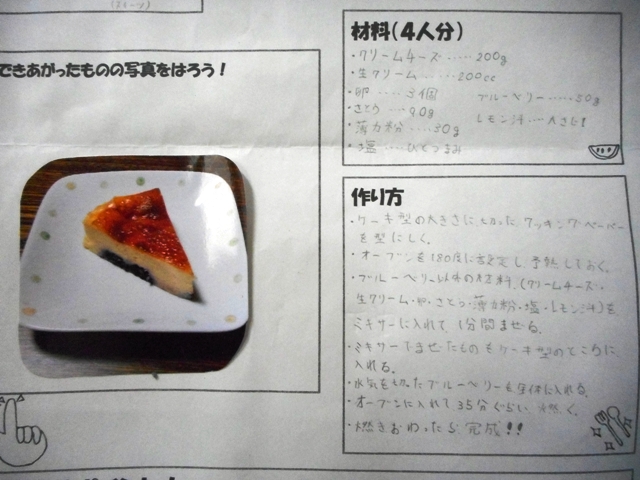 (スイーツ)
できあがったものの写真をはろう!
材料(4人分)
・クリームチーズ……200g
・生クリーム……200cc
・卵……3個 ブルーベリー……50g
・さとう…90g レモン汁…大さじ1
・薄力粉…30g
・塩……ひとつまみ
作り方
・ケーキ型の大きさに切ったクッキングペーパー
を型にしく。
・オーブンを180度に設定し、予熱しておく。
・ブルーベリー以外の材料(クリームチーズ・
生クリーム・卵・さとう・薄力粉・塩・レモン汁)を
ミキサーに入れて1分間まぜる。
・ミキサーでまぜたものをケーキ型のところに
入れる。
・水気を切ったブルーベリーも全体に入れる。
・オーブンに入れて35分ぐらい焼く。
・焼きおわったら完成!!